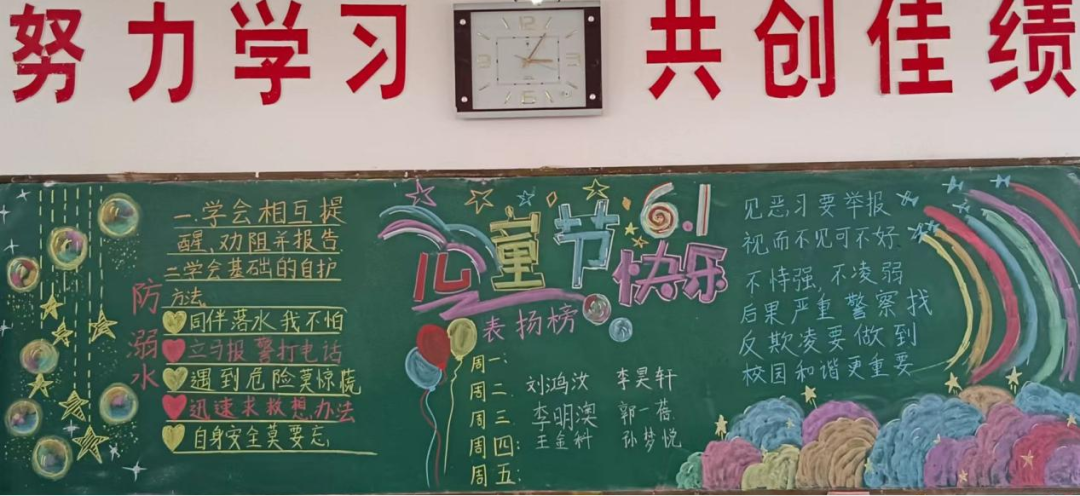 努力学习
共创佳绩
一.学会相互提
醒、劝阻并报告
二.学会基础的自护
方法
防弱水
同伴落水我不怕
立马报警打电话
遇到危险莫惊慌
迅速求救想办法
自身安全莫要忘
儿童节
6.1
快乐
表扬榜
周一:
周二. 刘鸿汝 李昊轩
周三: 李明澳 郭一蓓
周四: 王金科 孙梦悦
周五:
见恶习要举报
视而不见可不好
不恃强,不凌弱
后果严重警察找
反欺凌要做到
校园和谐更重要